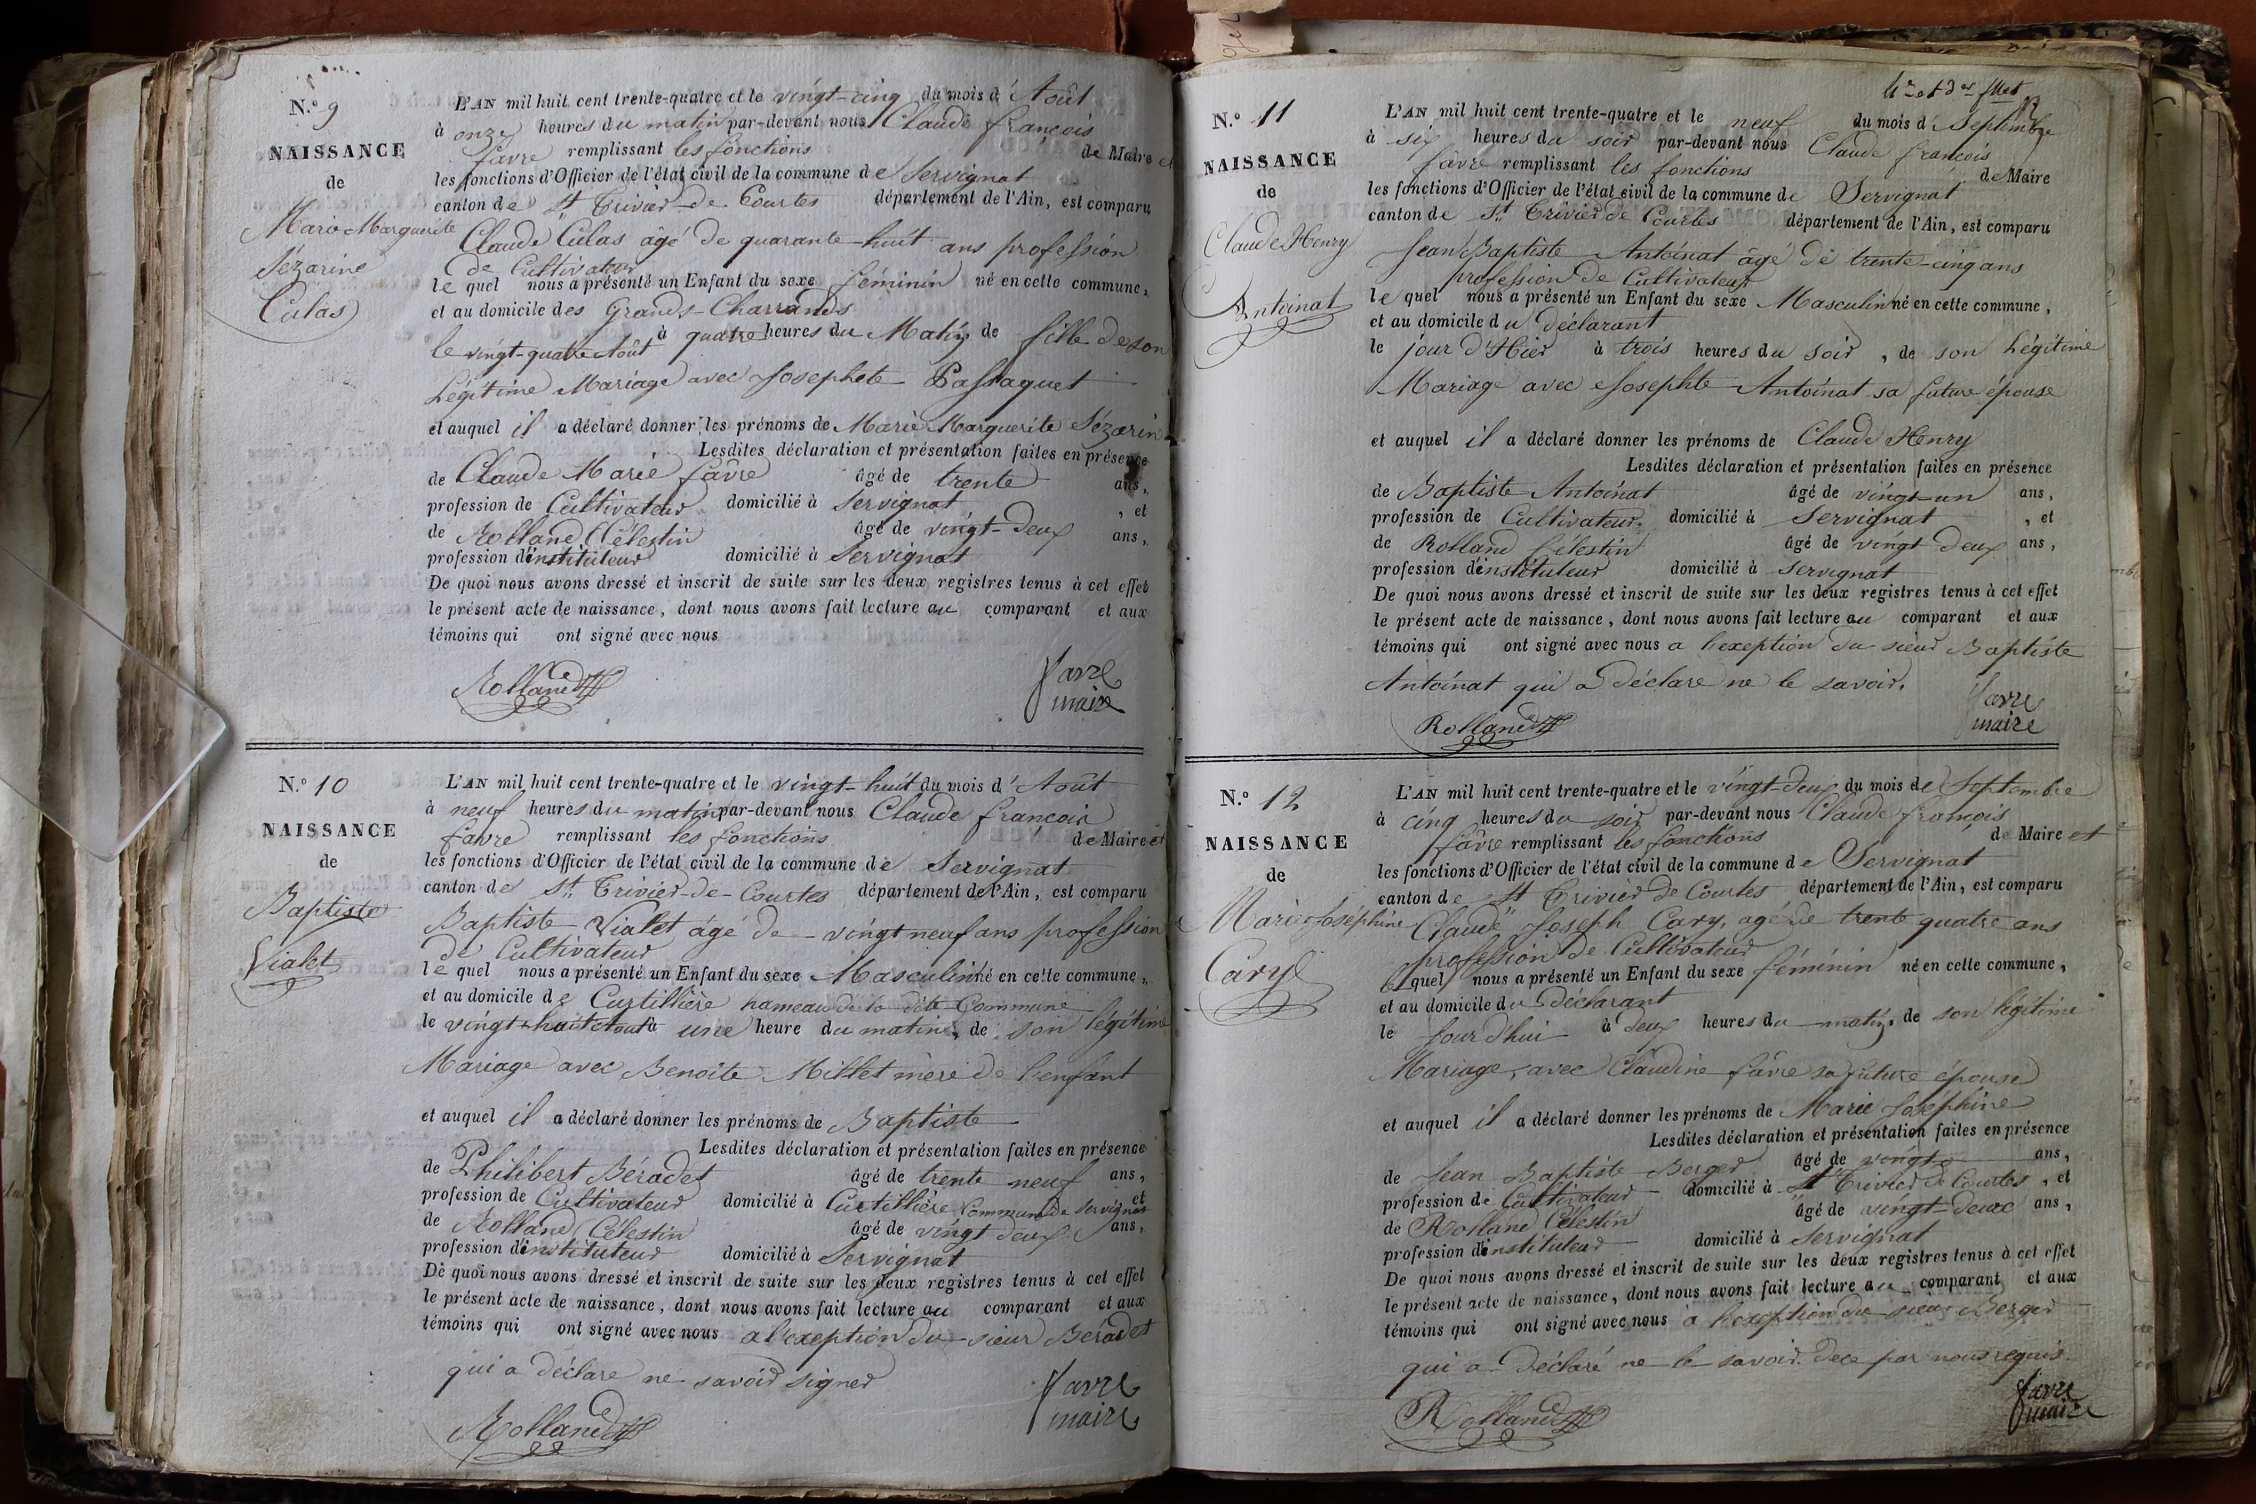 N.° 9
NAISSANCE
de
Marie Marguerite
Sézarine
Culas
L'AN mil huit cent trente-quatre et le vingt-cinq du mois d'Août
à onze heures du matin par-devant nous Claude françois
favre remplissant les fonctions de Maire et
les fonctions d'Officier de l'état civil de la commune de Servignat
canton de St Trivier-de-Courtes département de l'Ain, est comparu
Claude Culas âgé de quarante-huit ans profession
de Cultivateur
le quel nous a présenté un Enfant du sexe féminin né en cette commune,
et au domicile des Grands-Charrands
le vingt-quatre Août à quatre heures du Matin de fille de son
Légitime Mariage avec Josephete Passaquet
et auquel il a déclaré donner les prénoms de Marie Marguerite Sézarin
Lesdites déclaration et présentation faites en présence
de Claude Marie favre âgé de trente ans,
profession de Cultivateur domicilié à Servignat , et
de Rolland Célestin âgé de vingt-deux ans,
profession d'instituteur domicilié à Servignat
De quoi nous avons dressé et inscrit de suite sur les deux registres tenus à cet effet
le présent acte de naissance, dont nous avons fait lecture au comparant et aux
témoins qui ont signé avec nous
Rolland favre
maire
N.° 10
NAISSANCE
de
Baptiste
Vialet
L'AN mil huit cent trente-quatre et le vingt-huit du mois d'Août
à neuf heures du matin par-devant nous Claude françois
favre remplissant les fonctions de Maire et
les fonctions d'Officier de l'état civil de la commune de Servignat
canton de St Trivier-de-Courtes département de l'Ain, est comparu
Baptiste Vialet âgé de vingt neuf ans profession
de Cultivateur
le quel nous a présenté un Enfant du sexe Masculin né en cette commune,
et au domicile de Curtillière hameau de la dite Commune
le vingt-huit août à une heure du matin, de son légitime
Mariage avec Benoite Millet mère de l'enfant
et auquel il a déclaré donner les prénoms de Baptiste
Lesdites déclaration et présentation faites en présence
de Philibert Béradet âgé de trente neuf ans,
profession de Cultivateur domicilié à Curtillière Commune de Servignat et
de Rolland Célestin âgé de vingt deux ans,
profession d'instituteur domicilié à Servignat
De quoi nous avons dressé et inscrit de suite sur les deux registres tenus à cet effet
le présent acte de naissance, dont nous avons fait lecture au comparant et aux
témoins qui ont signé avec nous a l'exeption du sieur Béradet
qui a déclaré ne savoir signer
Rolland favre
maire
N.° 11
NAISSANCE
de
Claude Henry
Antoinat
L'AN mil huit cent trente-quatre et le neuf du mois d'Septembre
à six heures du soir par-devant nous Claude françois
favre remplissant les fonctions de Maire
les fonctions d'Officier de l'état civil de la commune de Servignat
canton de St Trivier de Courtes département de l'Ain, est comparu
Jean Baptiste Antoinat âgé de trente-cinq ans
profession de Cultivateur
le quel nous a présenté un Enfant du sexe Masculin né en cette commune,
et au domicile du déclarant
le jour d'Hier à trois heures du soir, de son Légitime
Mariage avec Josephte Antoinat sa future épouse
et auquel il a déclaré donner les prénoms de Claude Henry
Lesdites déclaration et présentation faites en présence
de Baptiste Antoinat âgé de vingt-un ans,
profession de Cultivateur domicilié à Servignat , et
de Rolland Célestin âgé de vingt deux ans,
profession d'instituteur domicilié à Servignat
De quoi nous avons dressé et inscrit de suite sur les deux registres tenus à cet effet
le présent acte de naissance, dont nous avons fait lecture au comparant et aux
témoins qui ont signé avec nous a l'exeption du sieur Baptiste
Antoinat qui a déclaré ne le savoir.
Rolland favre
maire
N.° 12
NAISSANCE
de
Marie Joséphine
Cary
L'AN mil huit cent trente-quatre et le vingt-deux du mois de Septembre
à cinq heures du soir par-devant nous Claude françois
favre remplissant les fonctions de Maire et
les fonctions d'Officier de l'état civil de la commune de Servignat
canton de St Trivier de Courtes département de l'Ain, est comparu
Claude Joseph Cary, agé de trente quatre ans
profession de Cultivateur
le quel nous a présenté un Enfant du sexe féminin né en cette commune,
et au domicile du Déclarant
le Jour d'hui à deux heures du matin, de son légitime
Mariage, avec Claudine favre sa future épouse
et auquel il a déclaré donner les prénoms de Marie Joséphine
Lesdites déclaration et présentation faites en présence
de Jean Baptiste Berger âgé de vingt ans,
profession de Cultivateur domicilié à St Trivier de Courtes , et
de Rolland Célestin âgé de vingt-deux ans,
profession d'instituteur domicilié à Servignat
De quoi nous avons dressé et inscrit de suite sur les deux registres tenus à cet effet
le présent acte de naissance, dont nous avons fait lecture au comparant et aux
témoins qui ont signé avec nous a l'exeption du sieur Berger
qui a Déclaré ne le savoir dece par nous requis
Rolland favre
maire